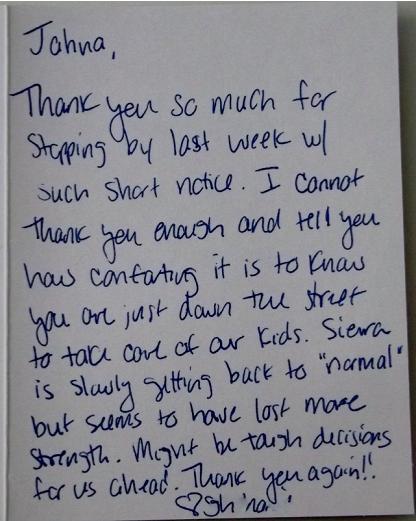 Jahna,
Thank you so much for
stopping by last week w/
such short notice. I cannot
thank you enough and tell you
how comforting it is to know
you are just down the street
to take care of our kids. Sierra
is slowly getting back to "normal"
but seems to have lost more
strength. Might be tough decisions
for us ahead. Thank you again!!
♡